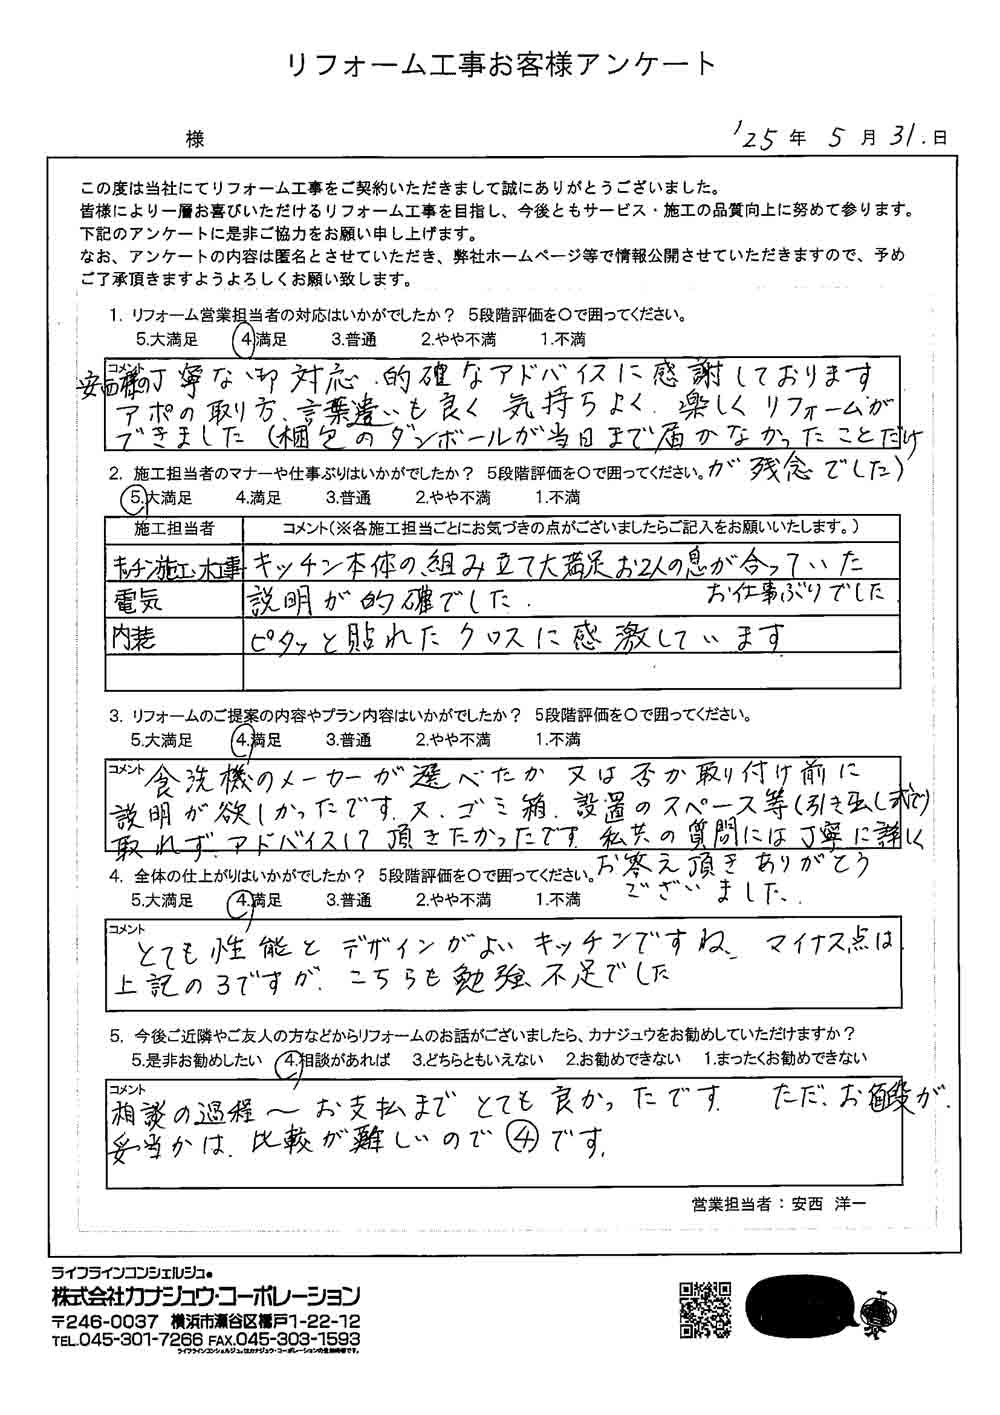 リフォーム工事お客様アンケート
様 '25年 5月 31.日
この度は当社にてリフォーム工事をご契約いただきまして誠にありがとうございました。
皆様により一層お喜びいただけるリフォーム工事を目指し、今後ともサービス・施工の品質向上に努めて参ります。
下記のアンケートに是非ご協力をお願い申し上げます。
なお、アンケートの内容は匿名とさせていただき、弊社ホームページ等で情報公開させていただきますので、予め
ご了承頂きますようよろしくお願い致します。
1. リフォーム営業担当者の対応はいかがでしたか? 5段階評価を〇で囲ってください。
5.大満足 4.満足 3.普通 2.やや不満 1.不満
コメント
安西様の丁寧な御対応.的確なアドバイスに感謝しております
アポの取り方、言葉遣いも良く気持ちよく.楽しくリフォームが
できました(梱包のダンボールが当日まで届かなかったことだけ
が残念でした)
2. 施工担当者のマナーや仕事ぶりはいかがでしたか? 5段階評価を〇で囲ってください。
5.大満足 4.満足 3.普通 2.やや不満 1.不満
施工担当者 コメント(※各施工担当ごとにお気づきの点がございましたらご記入をお願いいたします。)
キッチン施工、水工事 キッチン本体の、組み立て大満足お2人の息が合っていた
お仕事ぶりでした.
電気 説明が的確でした.
内装 ピタッと貼れたクロスに感激しています
3. リフォームのご提案の内容やプラン内容はいかがでしたか? 5段階評価を〇で囲ってください。
5.大満足 4.満足 3.普通 2.やや不満 1.不満
コメント
食洗機のメーカーが選べたか又は否か取り付け前に
説明が欲しかったです.又.ゴミ箱.設置のスペース等(引き出し式で)
取れず.アドバイスして頂きたかったです.私共の質問には丁寧に詳しく
お答え頂きありがとう
ございました.
4. 全体の仕上がりはいかがでしたか? 5段階評価を〇で囲ってください。
5.大満足 4.満足 3.普通 2.やや不満 1.不満
コメント
とても性能とデザインがよいキッチンですね、マイナス点は、
上記の3ですが.こちらも勉強不足でした
5. 今後ご近隣やご友人の方などからリフォームのお話がございましたら、カナジュウをお勧めしていただけますか?
5.是非お勧めしたい 4.相談があれば 3.どちらともいえない 2.お勧めできない 1.まったくお勧めできない
コメント
相談の過程〜お支払までとても良かったです. ただ、お値段が.
妥当かは.比較が難しいので④です.
営業担当者:安西 洋一
ライフラインコンシェルジュ®
株式会社カナジュウ・コーポレーション
〒246-0037 横浜市瀬谷区橋戸1-22-12
TEL.045-301-7266 FAX.045-303-1593
ライフラインコンシェルジュ®はカナジュウ・コーポレーションの登録商標です。